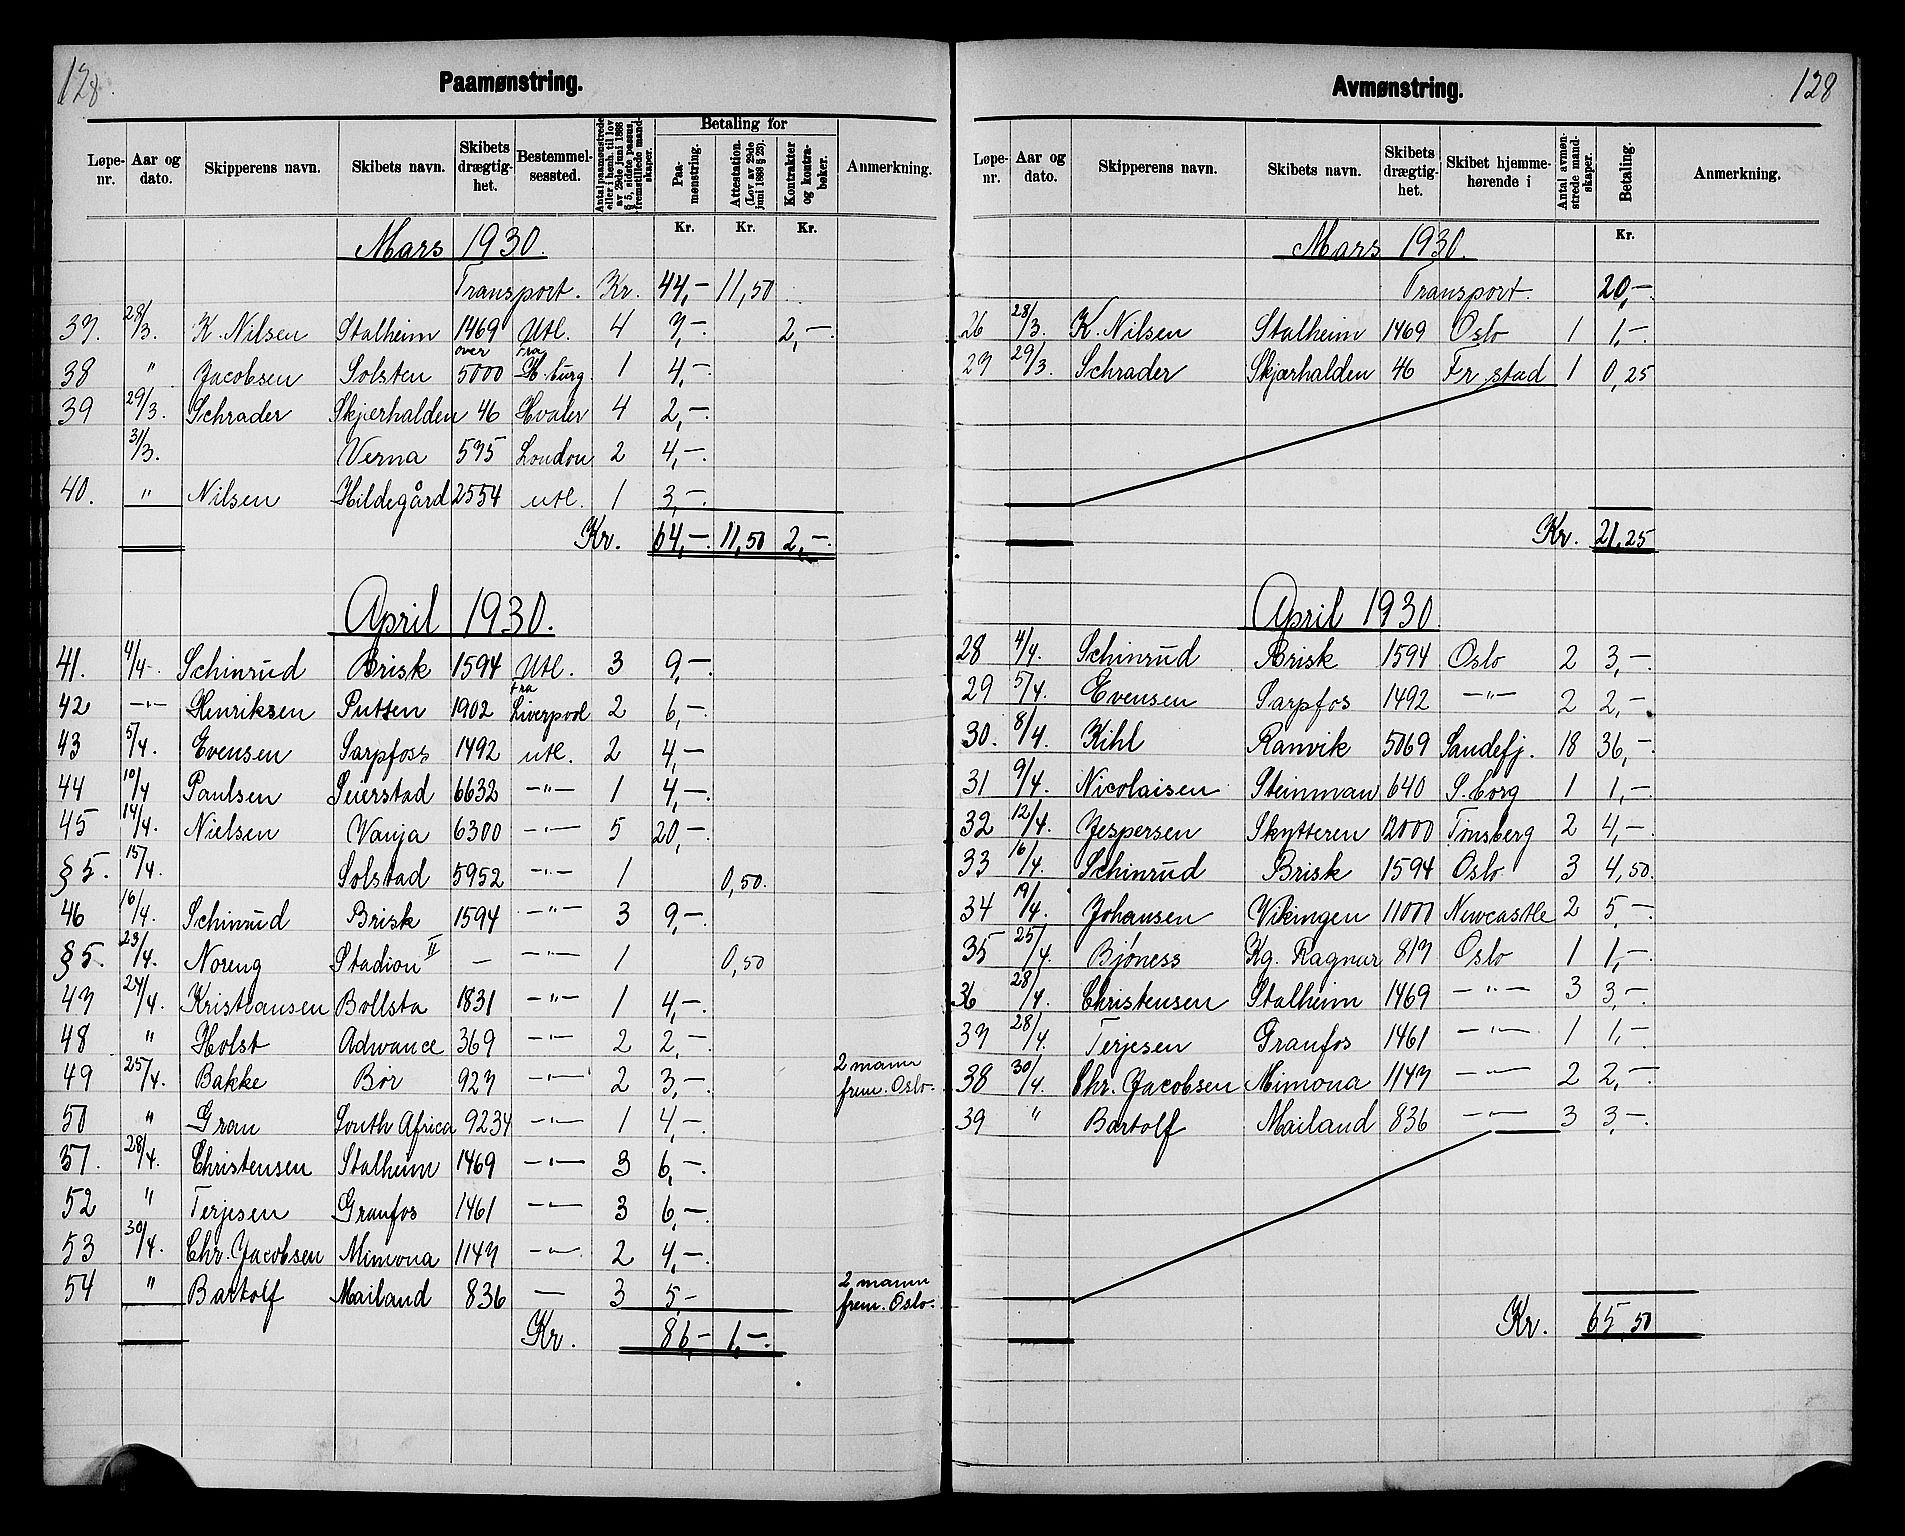 128.
Paamønstring.
Løpe-nr. Aar og dato. Skipperens navn. Skibets navn. Skibets drægtig-het. Bestemmel-sessted. Antal paamønstrede eller i henh. till lov av 29de juni 1888 § 5, sidste passus, fremstillede mand-skaper. Betaling for Paa-mønstring. Attestation. (Lov av 29de juni 1888 § 25). Kontrakter og kontra-bøker. Anmerkning.
Kr. Kr. Kr.
Mars 1930.
Transport. Kr. 44,- 11,50
37. 28/3. K. Nilsen Stalheim 1469 Utl. 4 3,- 2,-
38 " Jacobsen Solsten over 5000 Fra H.burg. 1 4,-
39 29/3. Schrader Skjærhalden 46 Hvaler 4 2,-
31/3. Verna 575 London 2 4,-
40. " Nilsen Hildegård 2554 utl. 1 3,-
Kr. 64,- 11,50 2,-
April 1930.
41. 4/4- Schinrud Brisk 1594 Utl. 3 9,-
42 -"- Henriksen Putten 1902 fra Liverpool 2 6,-
43 5/4. Evensen Sarpfoss 1492 utl. 2 4,-
44 10/4 Paulsen Seierstad 6632 -"- 1 4,-
45 14/4. Nielsen Vanja 6300 -"- 5 20,-
§ 5. 15/4. Solstad 5952 -"- 1 0,50.
46 16/4. Schinrud Brisk 1594 -"- 3 9,-
§ 5. 23/4. Noreng Stadion II - -"- 1 0,50
47 24/4. Kristiansen Bollsta 1831 -"- 1 4,-
48 " Holst Adwance 369 -"- 2 2,-
49 25/4. Bakke Bør 927 -"- 2 3,- 2 mann frem. Oslo-
50 " Gran South Africa 9234 -"- 1 4,-
57. 28/4. Christensen Stalheim 1469 -"- 3 6,-
52 " Terjesen Granfos 1461 -"- 3 6,-
53 30/4. Chr. Jacobsen Mimona 1147 -"- 2 4,-
54 " Bartolf Mailand 836 - 3 5,- 2 mann frem. Oslo.
Kr. 86,- 1,-
128
Avmønstring.
Løpe-nr. Aar og dato. Skipperens navn. Skibets navn. Skibets drægtig-het. Skibet hjemme-hørende i Antal avmøn-strede mand-skaper. Betaling. Anmerkning.
Kr.
Mars 1930.
Transport. 20,-
26 28/3. K. Nilsen Stalheim 1469 Oslo 1 1,-
27 29/3. Schrader Skjærhalden 46 Fr stad 1 0,25
Kr. 21,25
April 1930
28 4/4. Schinrud Brisk 1594 Oslo 2 3,-
29 5/4. Evensen Sarpfos 1492 -"- 2 2,-
30. 8/4. Kihl Ranvik 5069 Sandefj. 18 36,-
31 9/4. Nicolaisen Steinman 640 S.borg 1 1,-
32 12/4. Jespersen Skytteren 12000 Tønsberg 2 4,-
33 16/4. Schinrud Brisk 1594 Oslo 3 4,50.
34 19/4. Johansen Vikingen 11000 Newcastle 2 5,-
35 25/4. Bjóness Kg. Ragnar 817 Oslo 1 1,-
36 28/4. Christensen Stalheim 1469 -"- 3 3,-
37 28/4. Terjesen Granfos 1461 -"- 1 1,-
38 30/4. Chr. Jacobsen Mimona 1147 -"- 2 2,-
39 " Bartolf Mailand 836 -"- 3 3,-
Kr. 65,50